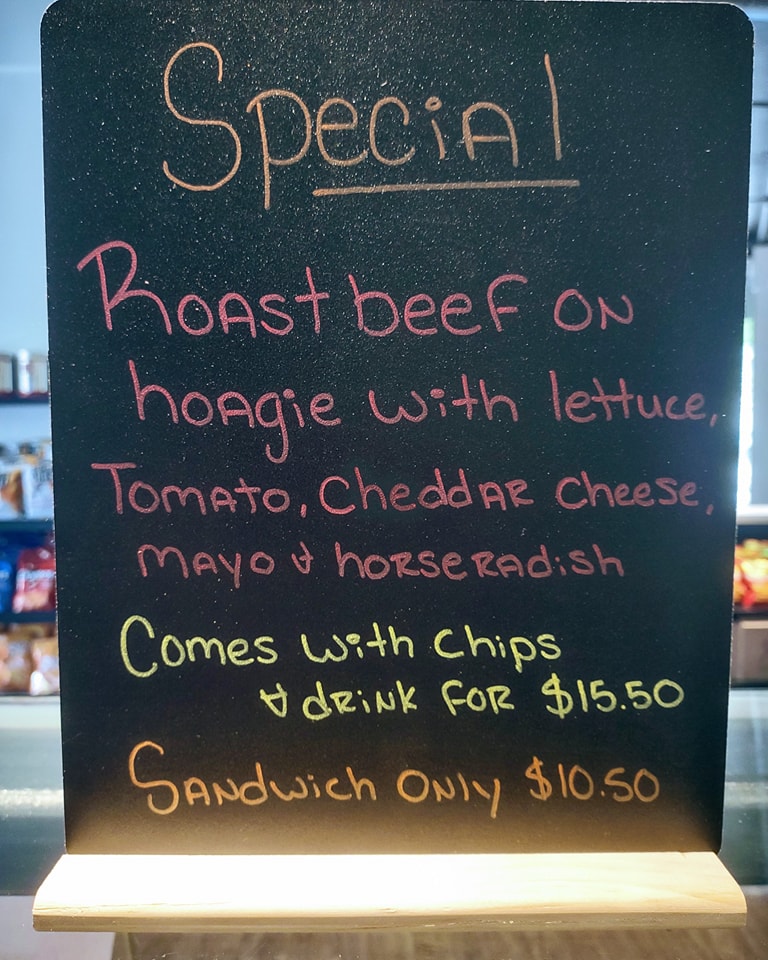 Special
Roast beef on
hoagie with lettuce,
Tomato, Cheddar Cheese,
mayo & horseradish
Comes with chips
& drink for $15.50
Sandwich only $10.50